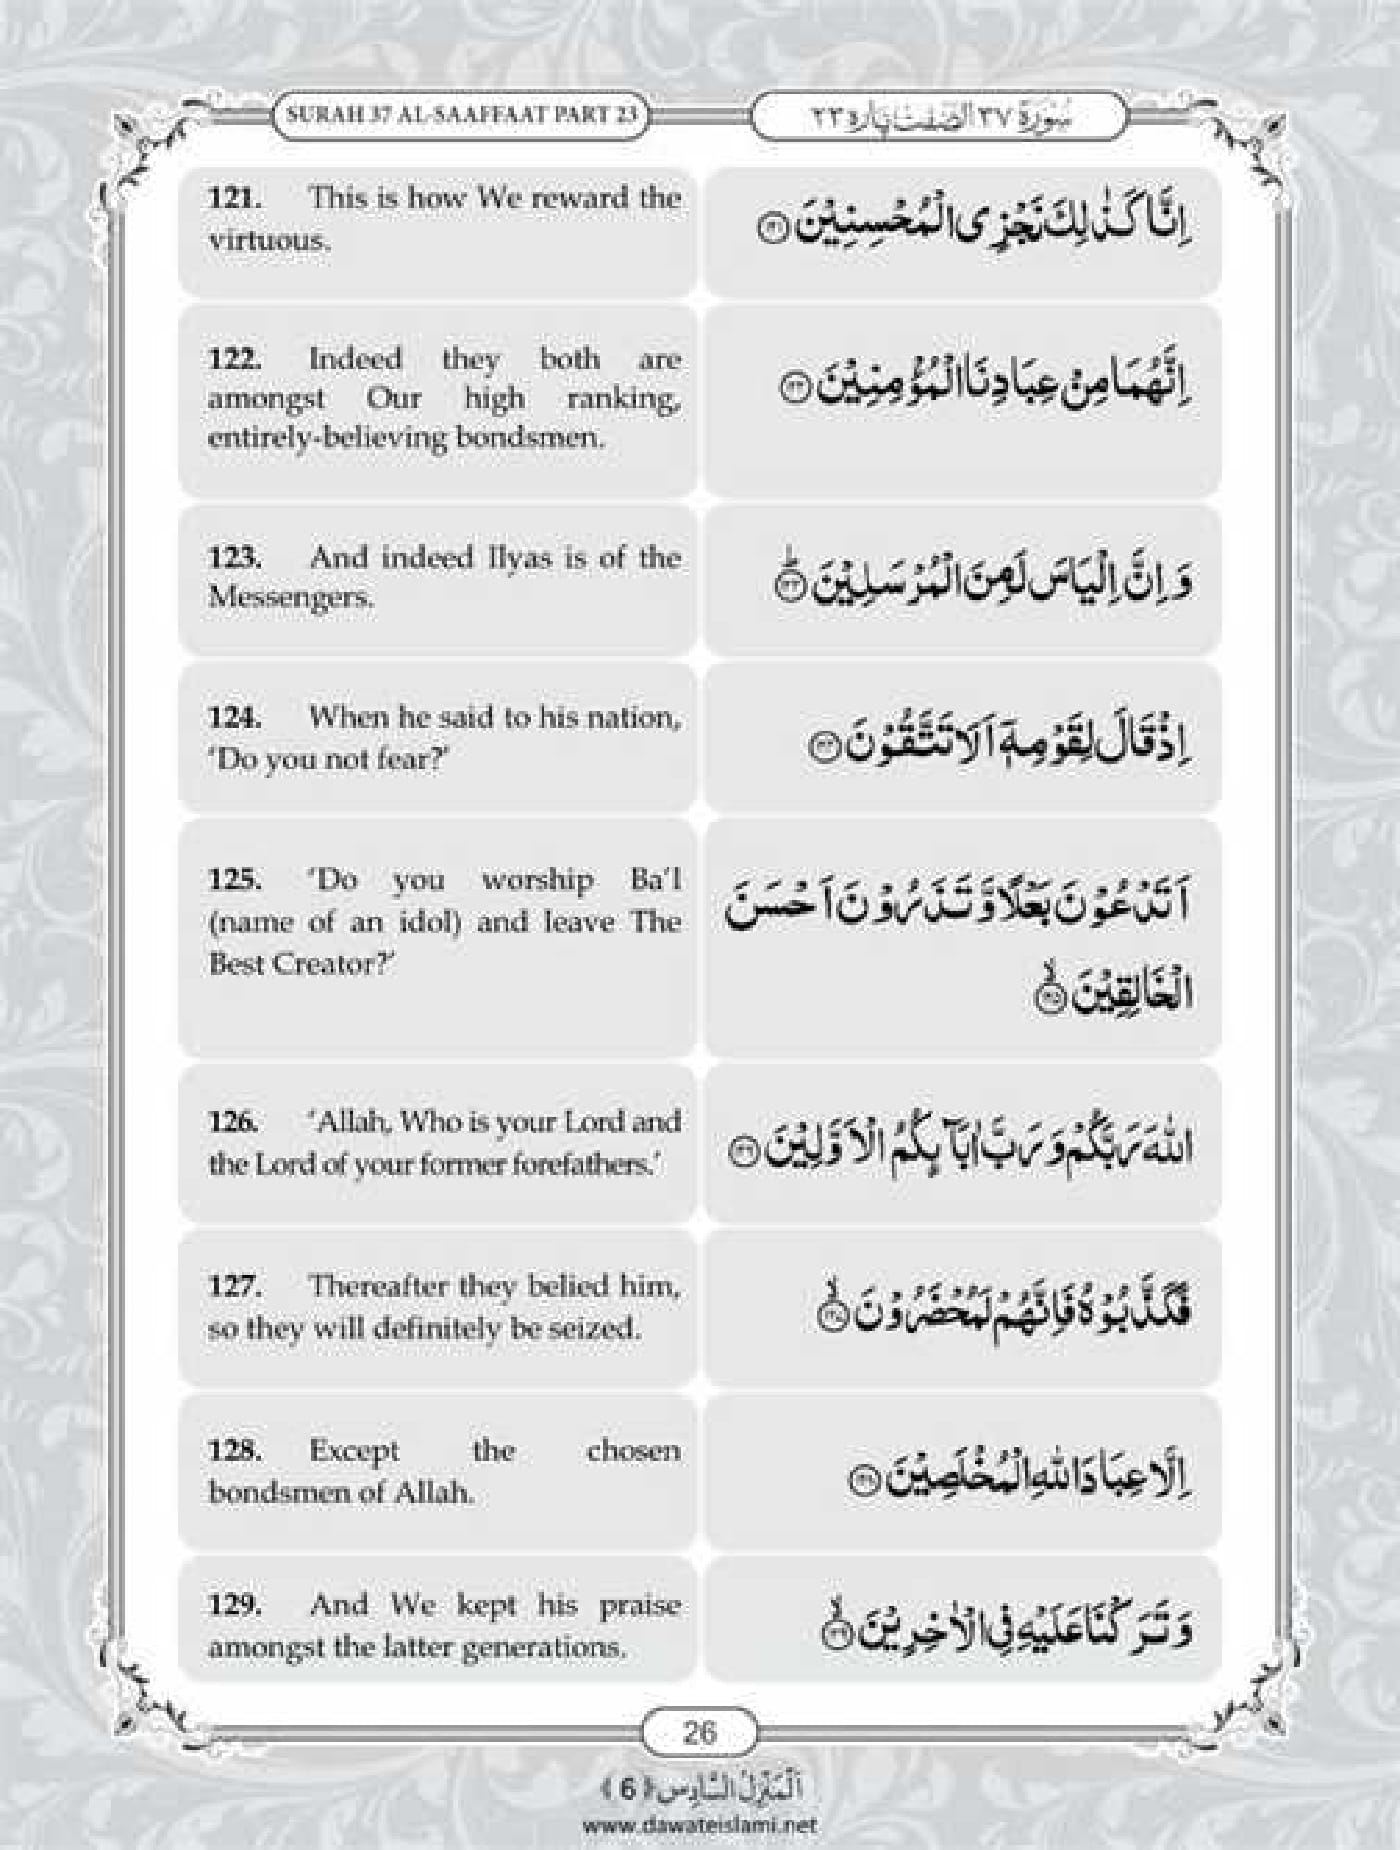 SURAH 37 AL-SAAFFAAT PART 23
سُوْرَة ٣٧ الصّٰفّٰت پارہ ٢٣
121. This is how We reward the
virtuous.
اِنَّا كَذٰلِكَ نَجْزِی الْمُحْسِنِیْنَ ﴿۱۲۱﴾
122. Indeed they both are
amongst Our high ranking,
entirely-believing bondsmen.
اِنَّهُمَا مِنْ عِبَادِنَا الْمُؤْمِنِیْنَ ﴿۱۲۲﴾
123. And indeed Ilyas is of the
Messengers.
وَ اِنَّ اِلْیَاسَ لَمِنَ الْمُرْسَلِیْنَ ﴿۱۲۳﴾ؕ
124. When he said to his nation,
‘Do you not fear?’
اِذْ قَالَ لِقَوْمِهٖۤ اَلَا تَتَّقُوْنَ ﴿۱۲۴﴾
125. ‘Do you worship Ba’l
(name of an idol) and leave The
Best Creator?’
اَتَدْعُوْنَ بَعْلًا وَّ تَذَرُوْنَ اَحْسَنَ
الْخَالِقِیْنَ ﴿۱۲۵﴾ۙ
126. ‘Allah, Who is your Lord and
the Lord of your former forefathers.’
اللّٰهَ رَبَّكُمْ وَ رَبَّ اٰبَآىِٕكُمُ الْاَوَّلِیْنَ ﴿۱۲۶﴾
127. Thereafter they belied him,
so they will definitely be seized.
فَكَذَّبُوْهُ فَاِنَّهُمْ لَمُحْضَرُوْنَ ﴿۱۲۷﴾ۙ
128. Except the chosen
bondsmen of Allah.
اِلَّا عِبَادَ اللّٰهِ الْمُخْلَصِیْنَ ﴿۱۲۸﴾
129. And We kept his praise
amongst the latter generations.
وَ تَرَكْنَا عَلَیْهِ فِی الْاٰخِرِیْنَ ﴿۱۲۹﴾ۙ
26
اَلْمَنْزِلُ السَّادِس ﴿6﴾
www.dawateislami.net